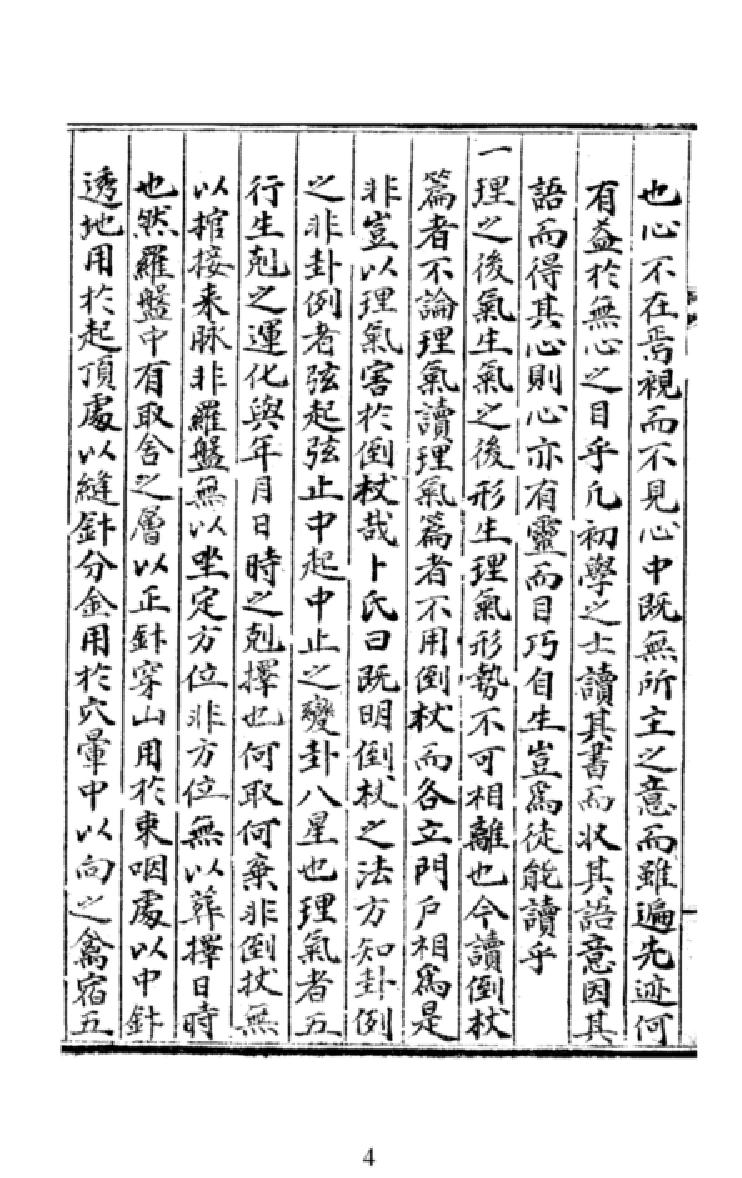 也心不在焉視而不見心中既無所主之意而雖遍先迹何
有益於無心之目乎凡初學之士讀其書而狀其語意因其
語而得其心則心亦有靈而目巧自生豈爲徒能讀乎
一理之後氣生氣之後形生理氣形勢不可相離也今讀倒杖
篇者不論理氣讀理氣篇者不用倒杖而各立門戶相爲是
非豈以理氣害於倒杖哉卜氏曰既明倒杖之法方知卦例
之非卦例者弦起弦止中起中止之變卦八星也理氣者五
行生剋之運化與年月日時之剋擇也何取何棄非倒杖無
以棺接来脉非羅盤無以坐定方位非方位無以葬擇日時
也然羅盤中有取舍之層以正針穿山用於束咽處以中針
透地用於起頂處以縫針分金用於穴暈中以向之禽宿五
4